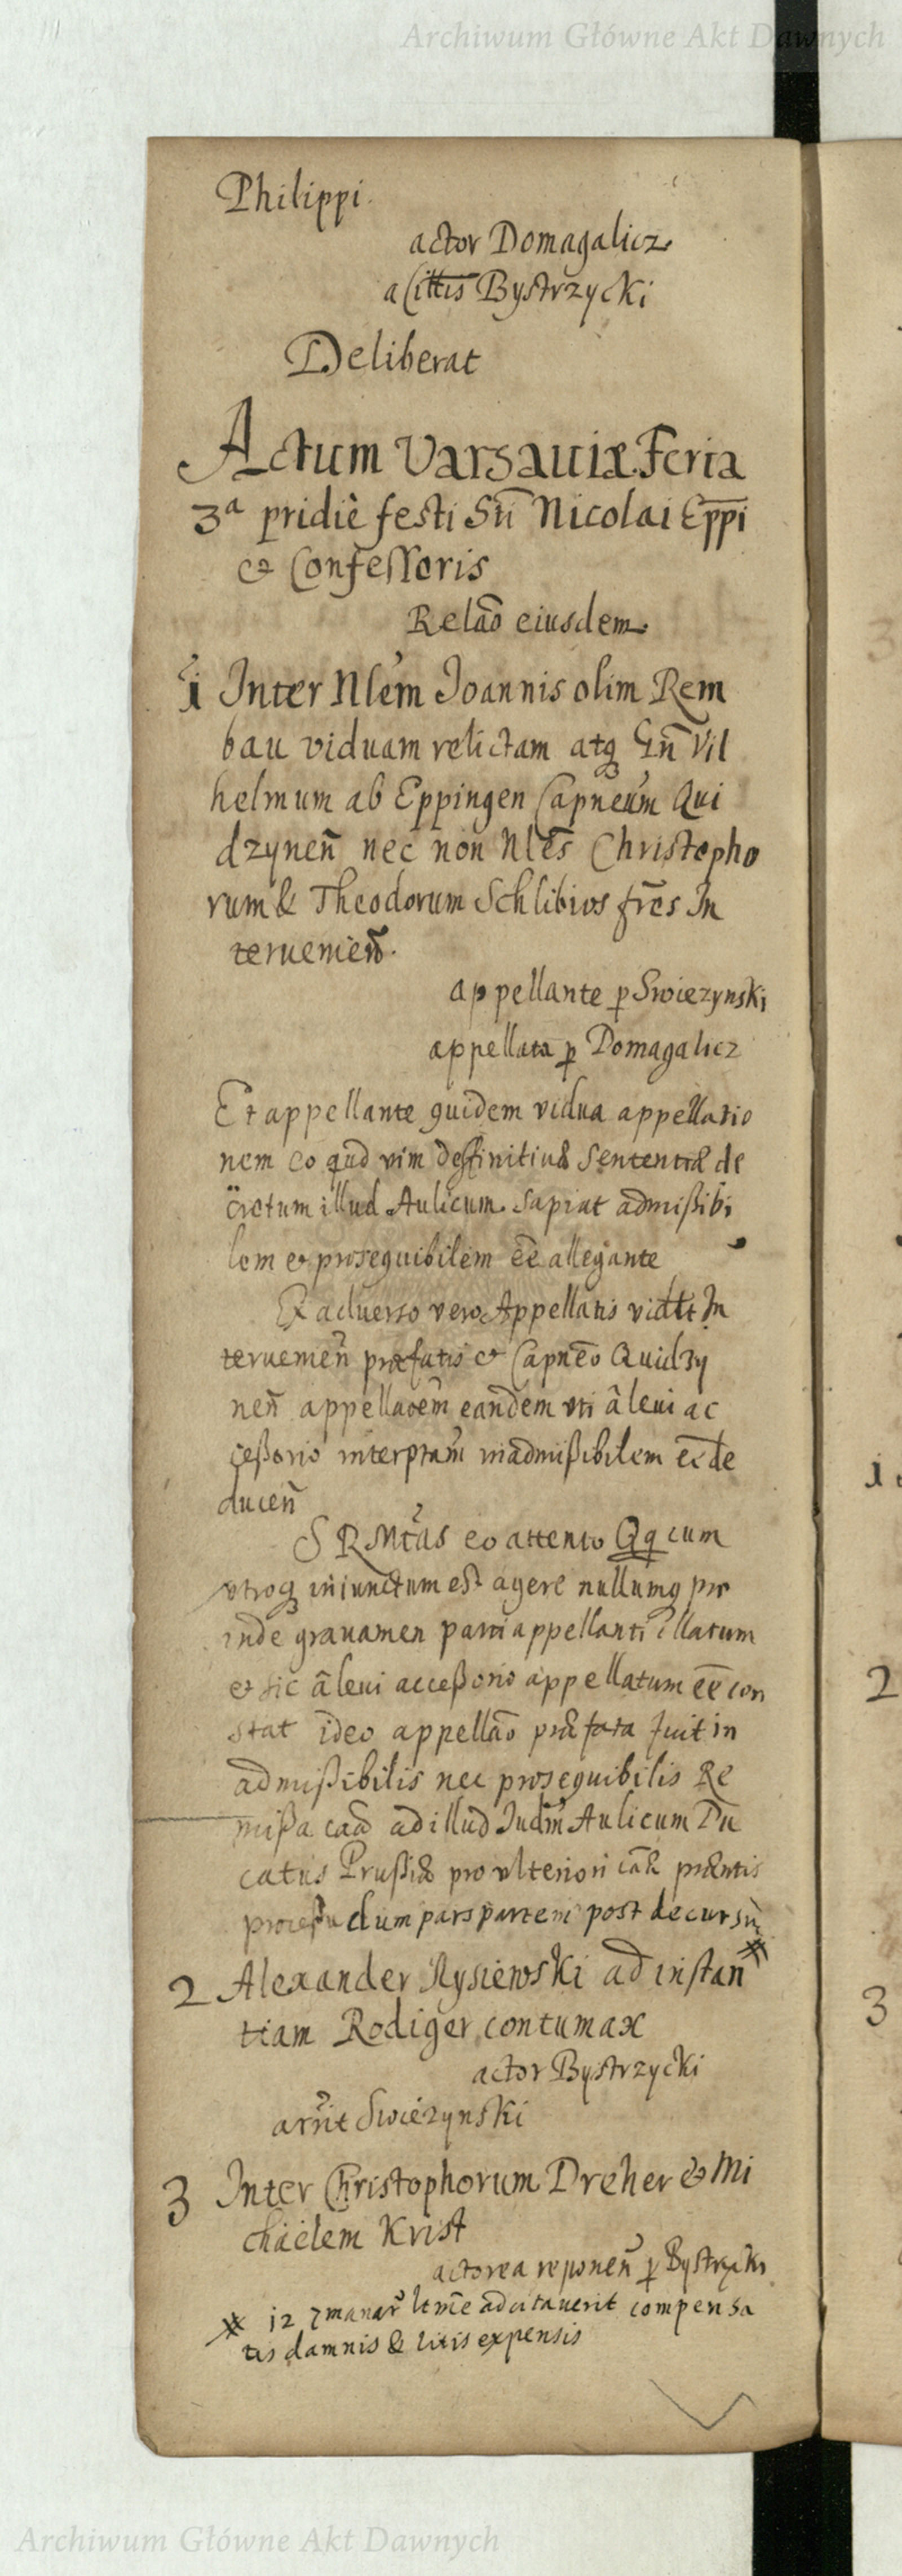 Archiwum Główne Akt Dawnych
Philippi.
actor Domagalicz
a Cittis Bystrzycki
Deliberat
Actum Varsauiæ Feria
3ª pridiè festi Sti Nicolai Eppi
& Confessoris
Relão eiusdem
1 Inter Nlem Ioannis olim Rem
bau viduam relictam atq Gn Vil
helmum ab Eppingen Capneum Qui
dzynen nec non Nles Christopho
rum & Theodorum Schlibios fres In
teruenien.
appellante p Swiezynski
appellata p Domagalicz
Et appellante quidem vidua appellatio
nem eo qud vim deffinitiuæ sententiæ de
cretum illud Aulicum sapiat admissibi
lem et prosequibilem ee allegante
Ex aduerso vero Appellatis vidlt In
teruenien præfatis et Capneo Quidzy
nen appellaoem eandem vti â leui ac
cessorio interptam inadmissibilem ee de
ducen
S R Mtas eo attento Qq cum
vtroq iniunctum est agere nullumq pro
inde grauamen parti appellanti illatum
et sic â leui accessorio appellatum ee con
stat ideo appellão præfata fuit in
admissibilis nec prosequibilis Re
missa caa ad illud Iudm Aulicum Du
catus Prussiæ pro vlteriori cæ præntis
processu dum pars partem post decursu #
2 Alexander Rysiewski ad instan
tiam Rodiger contumax
actor Bystrzycki
arrit Swiezynski
3 Inter Christophorum Dreher & Mi
chäelem Krist
actorea reponen p Bystrzycki
# 12 7manar ltme adcitauerit compensa
tis damnis & litis expensis
1
2
3
Archiwum Główne Akt Dawnych